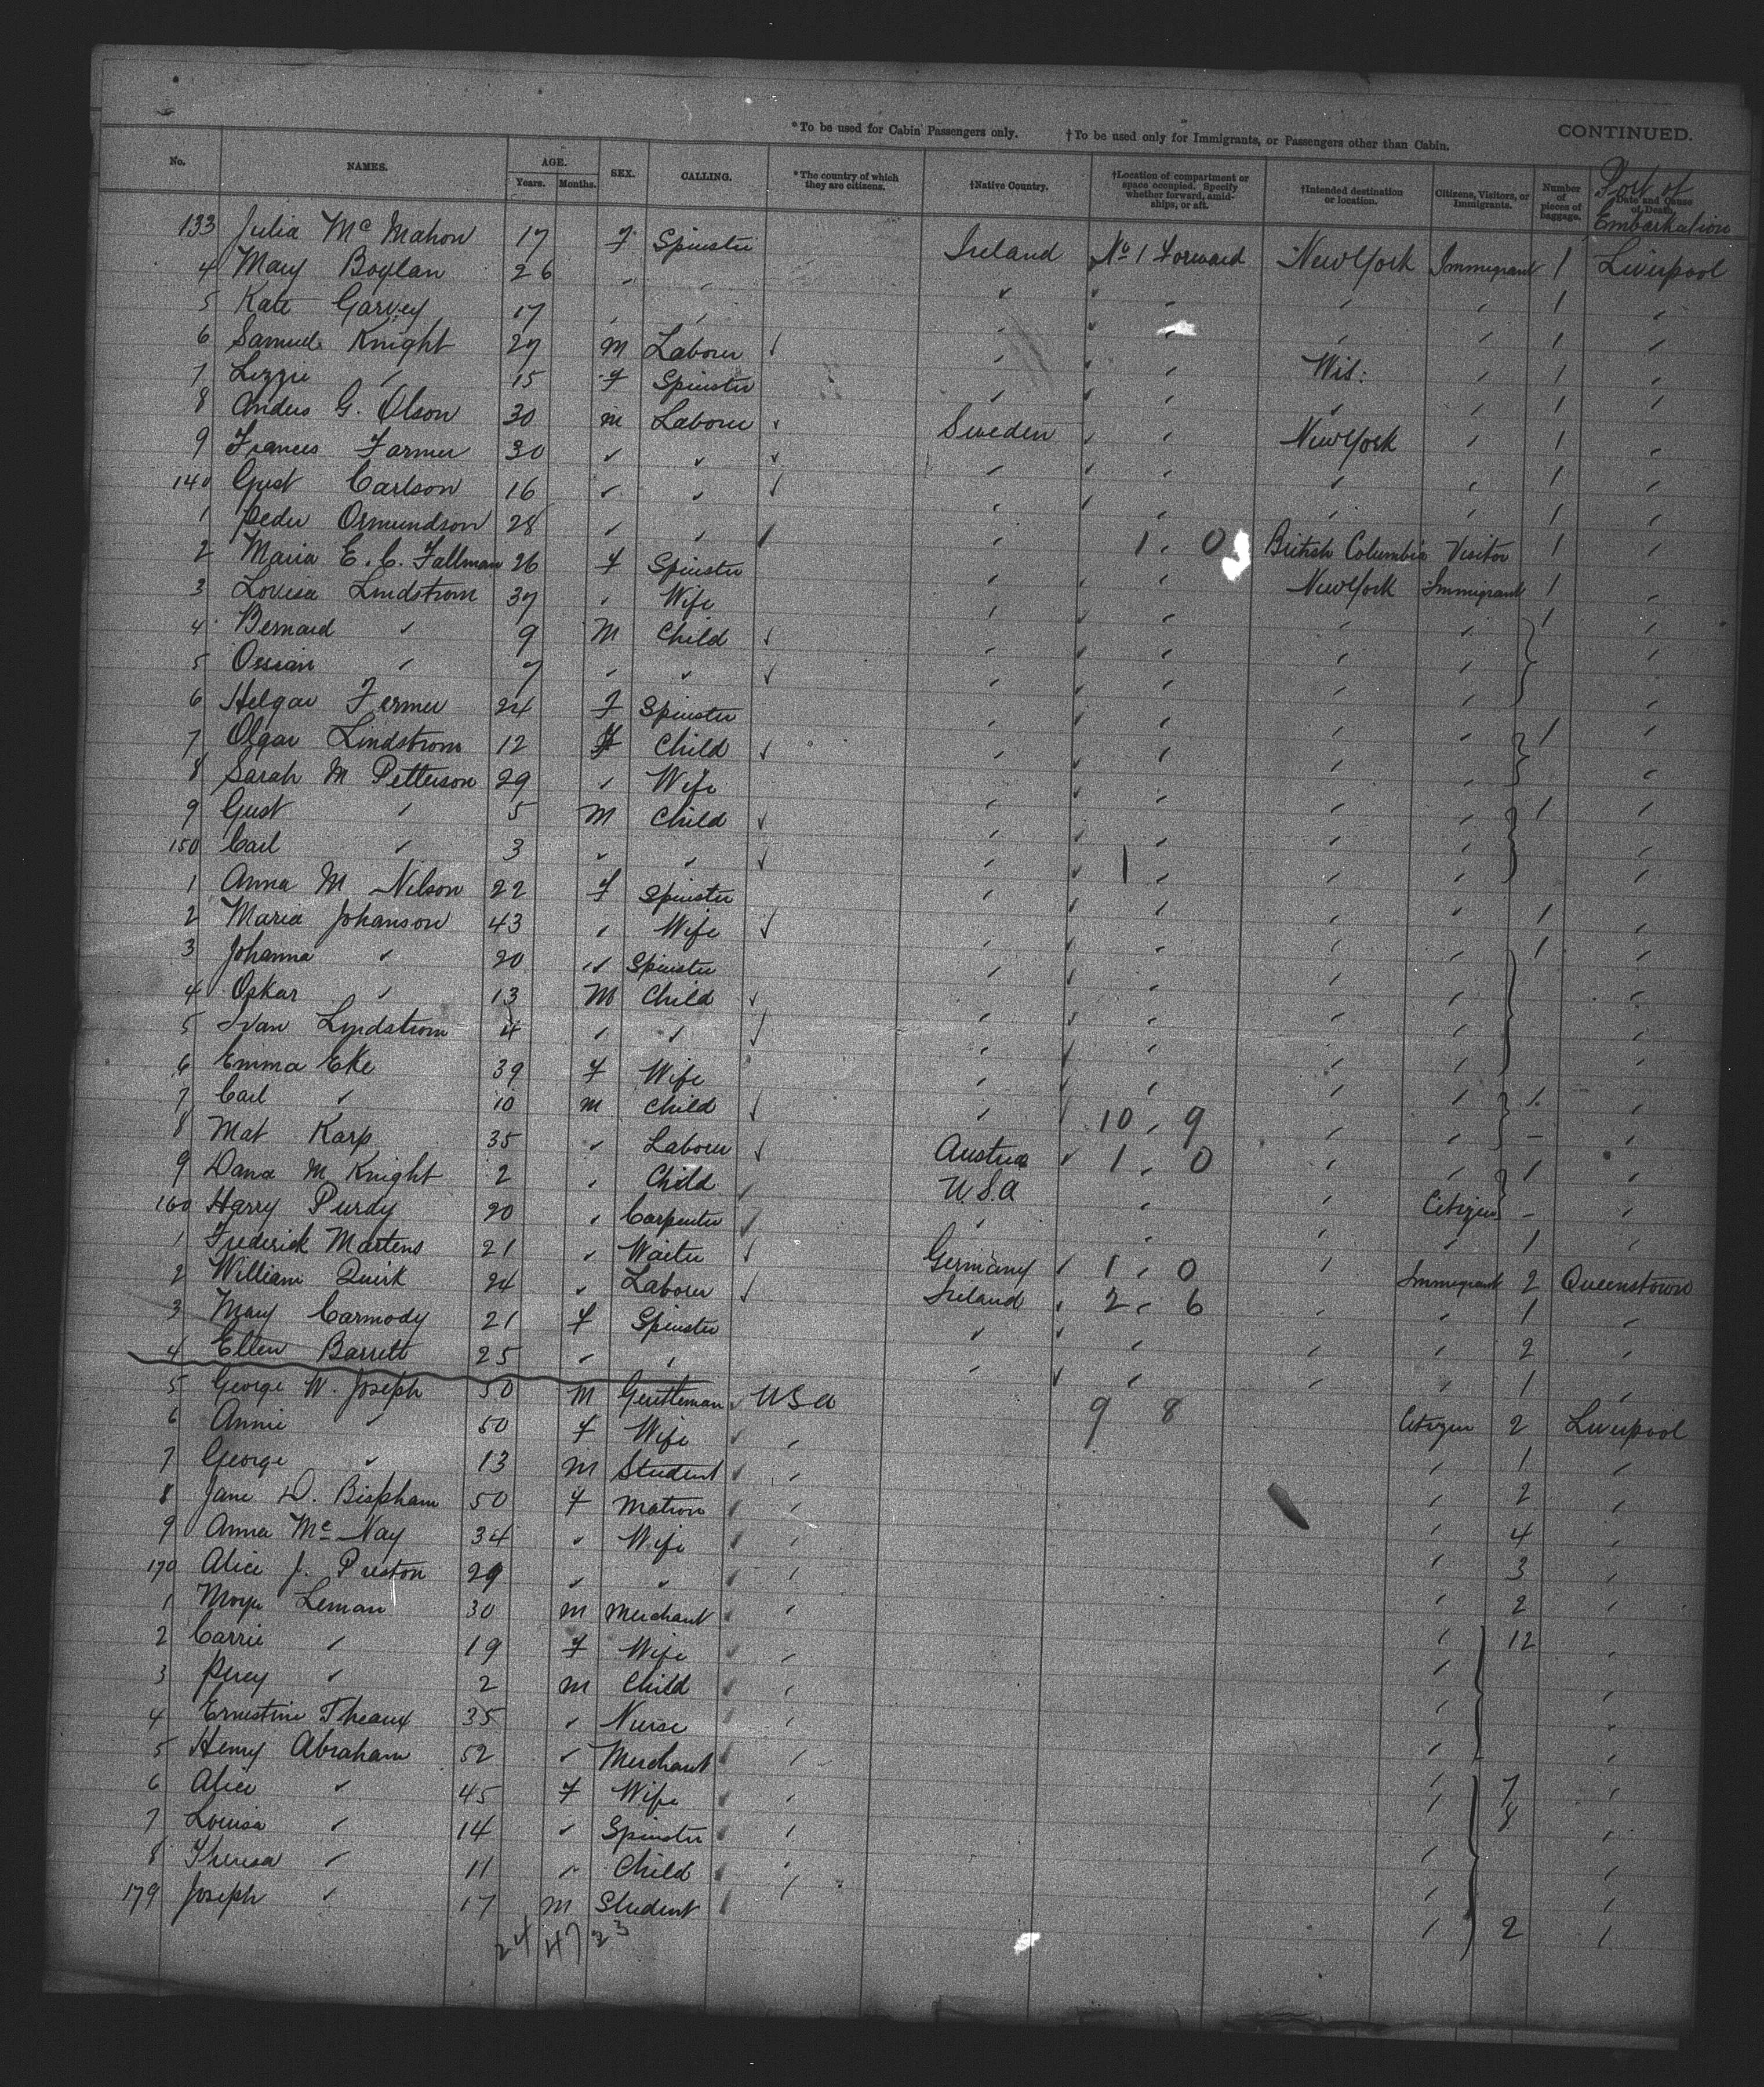 *To be used for Cabin Passengers only. †To be used only for Immigrants, or Passengers other than Cabin. CONTINUED.
No. NAMES. AGE. Years. Months. SEX. CALLING. *The country of which they are citizens. †Native Country. †Location of compartment or space occupied. Specify whether forward, amidships, or aft. †Intended destination or location. Citizens, Visitors, or Immigrants. Number of pieces of baggage. Date and Cause of Death. Port of Embarkation
133 Julia McMahon 17 F Spinster Ireland No 1 Forward New York Immigrant 1 Liverpool
4 Mary Boylan 26 " " " " " " 1 "
5 Kate Garvey 17 " " " " " " 1 "
6 Samuel Knight 27 M Labourer " " Wis: " 1 "
7 Lizzie " 15 F Spinster " " " " 1 "
8 Anders G. Olson 30 M Labourer Sweden " New York " 1 "
9 Frances Farmer 30 " " " " " " 1 "
140 Gust Carlson 16 " " " " " " 1 "
1 Peder Ormundson 28 " " " 1 . 0 British Columbia Visitor 1 "
2 Maria E. C. Fallman 26 F Spinster " " New York Immigrant 1 "
3 Lovisa Lindstrom 37 " Wife " " " " 1 "
4 Bernard " 9 M Child " " " " "
5 Ossian " 7 " " " " " " "
6 Helgar Fermer 24 F Spinster " " " " 1 "
7 Olgar Lindstrom 12 F Child " " " " "
8 Sarah M Petterson 29 " Wife " " " " 1 "
9 Gust " 5 M Child " " " " "
150 Carl " 3 " " " " " " "
1 Anna M Nilson 22 F Spinster " " " " 1 "
2 Maria Johanson 43 " Wife " " " " 1 "
3 Johanna " 20 " Spinster " " " " "
4 Oskar " 13 M Child " " " " "
5 Ivan Lindstrom 4 " " " " " " "
6 Emma Eke 39 F Wife " " " " 1 "
7 Carl " 10 M Child " 10 . 9 " " - "
8 Mat Karp 35 " Labourer Austria 1 . 0 " " 1 "
9 Dana M Knight 2 " Child U.S.A " " Citizen - "
160 Harry Purdy 20 " Carpenter " " " " 1 "
1 Frederick Martens 21 " Waiter Germany 1 . 0 " Immigrant 2 Queenstown
2 William Quirk 24 " Labourer Ireland 2 . 6 " " 1 "
3 Mary Carmody 21 F Spinster " " " " 2 "
4 Ellen Barrett 25 " " " " " " 1 "
5 George W. Joseph 50 M Gentleman USA 9 8 Citizen 2 Liverpool
6 Annie " 50 F Wife " " 1 "
7 George " 13 M Student " " 2 "
8 Jane D. Bispham 50 F Matron " " 4 "
9 Anna McNay 34 " Wife " " 3 "
170 Alice J. Preston 29 " " " " 2 "
1 Leman 30 M Merchant " " 12 "
2 Carrie " 19 F Wife " " "
3 Percy " 2 M Child " " "
4 Ernestine Theaux 35 " Nurse " " "
5 Henry Abraham 52 " Merchant " " 7 "
6 Alice " 45 F Wife " " 8 "
7 Louisa " 14 " Spinster " " "
8 Theresa " 11 " Child " " "
179 Joseph " 17 M Student " 2 "
24 47 23